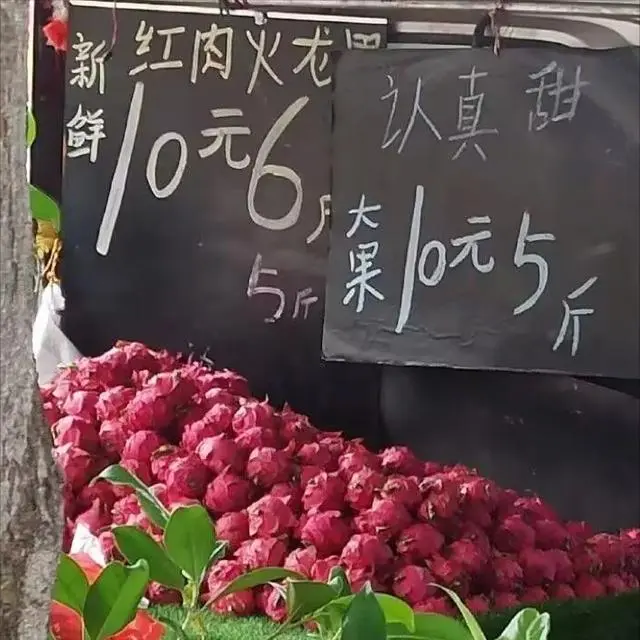 新鲜
红肉火龙果
10元6斤
5斤
认真 甜
大果
10元5斤